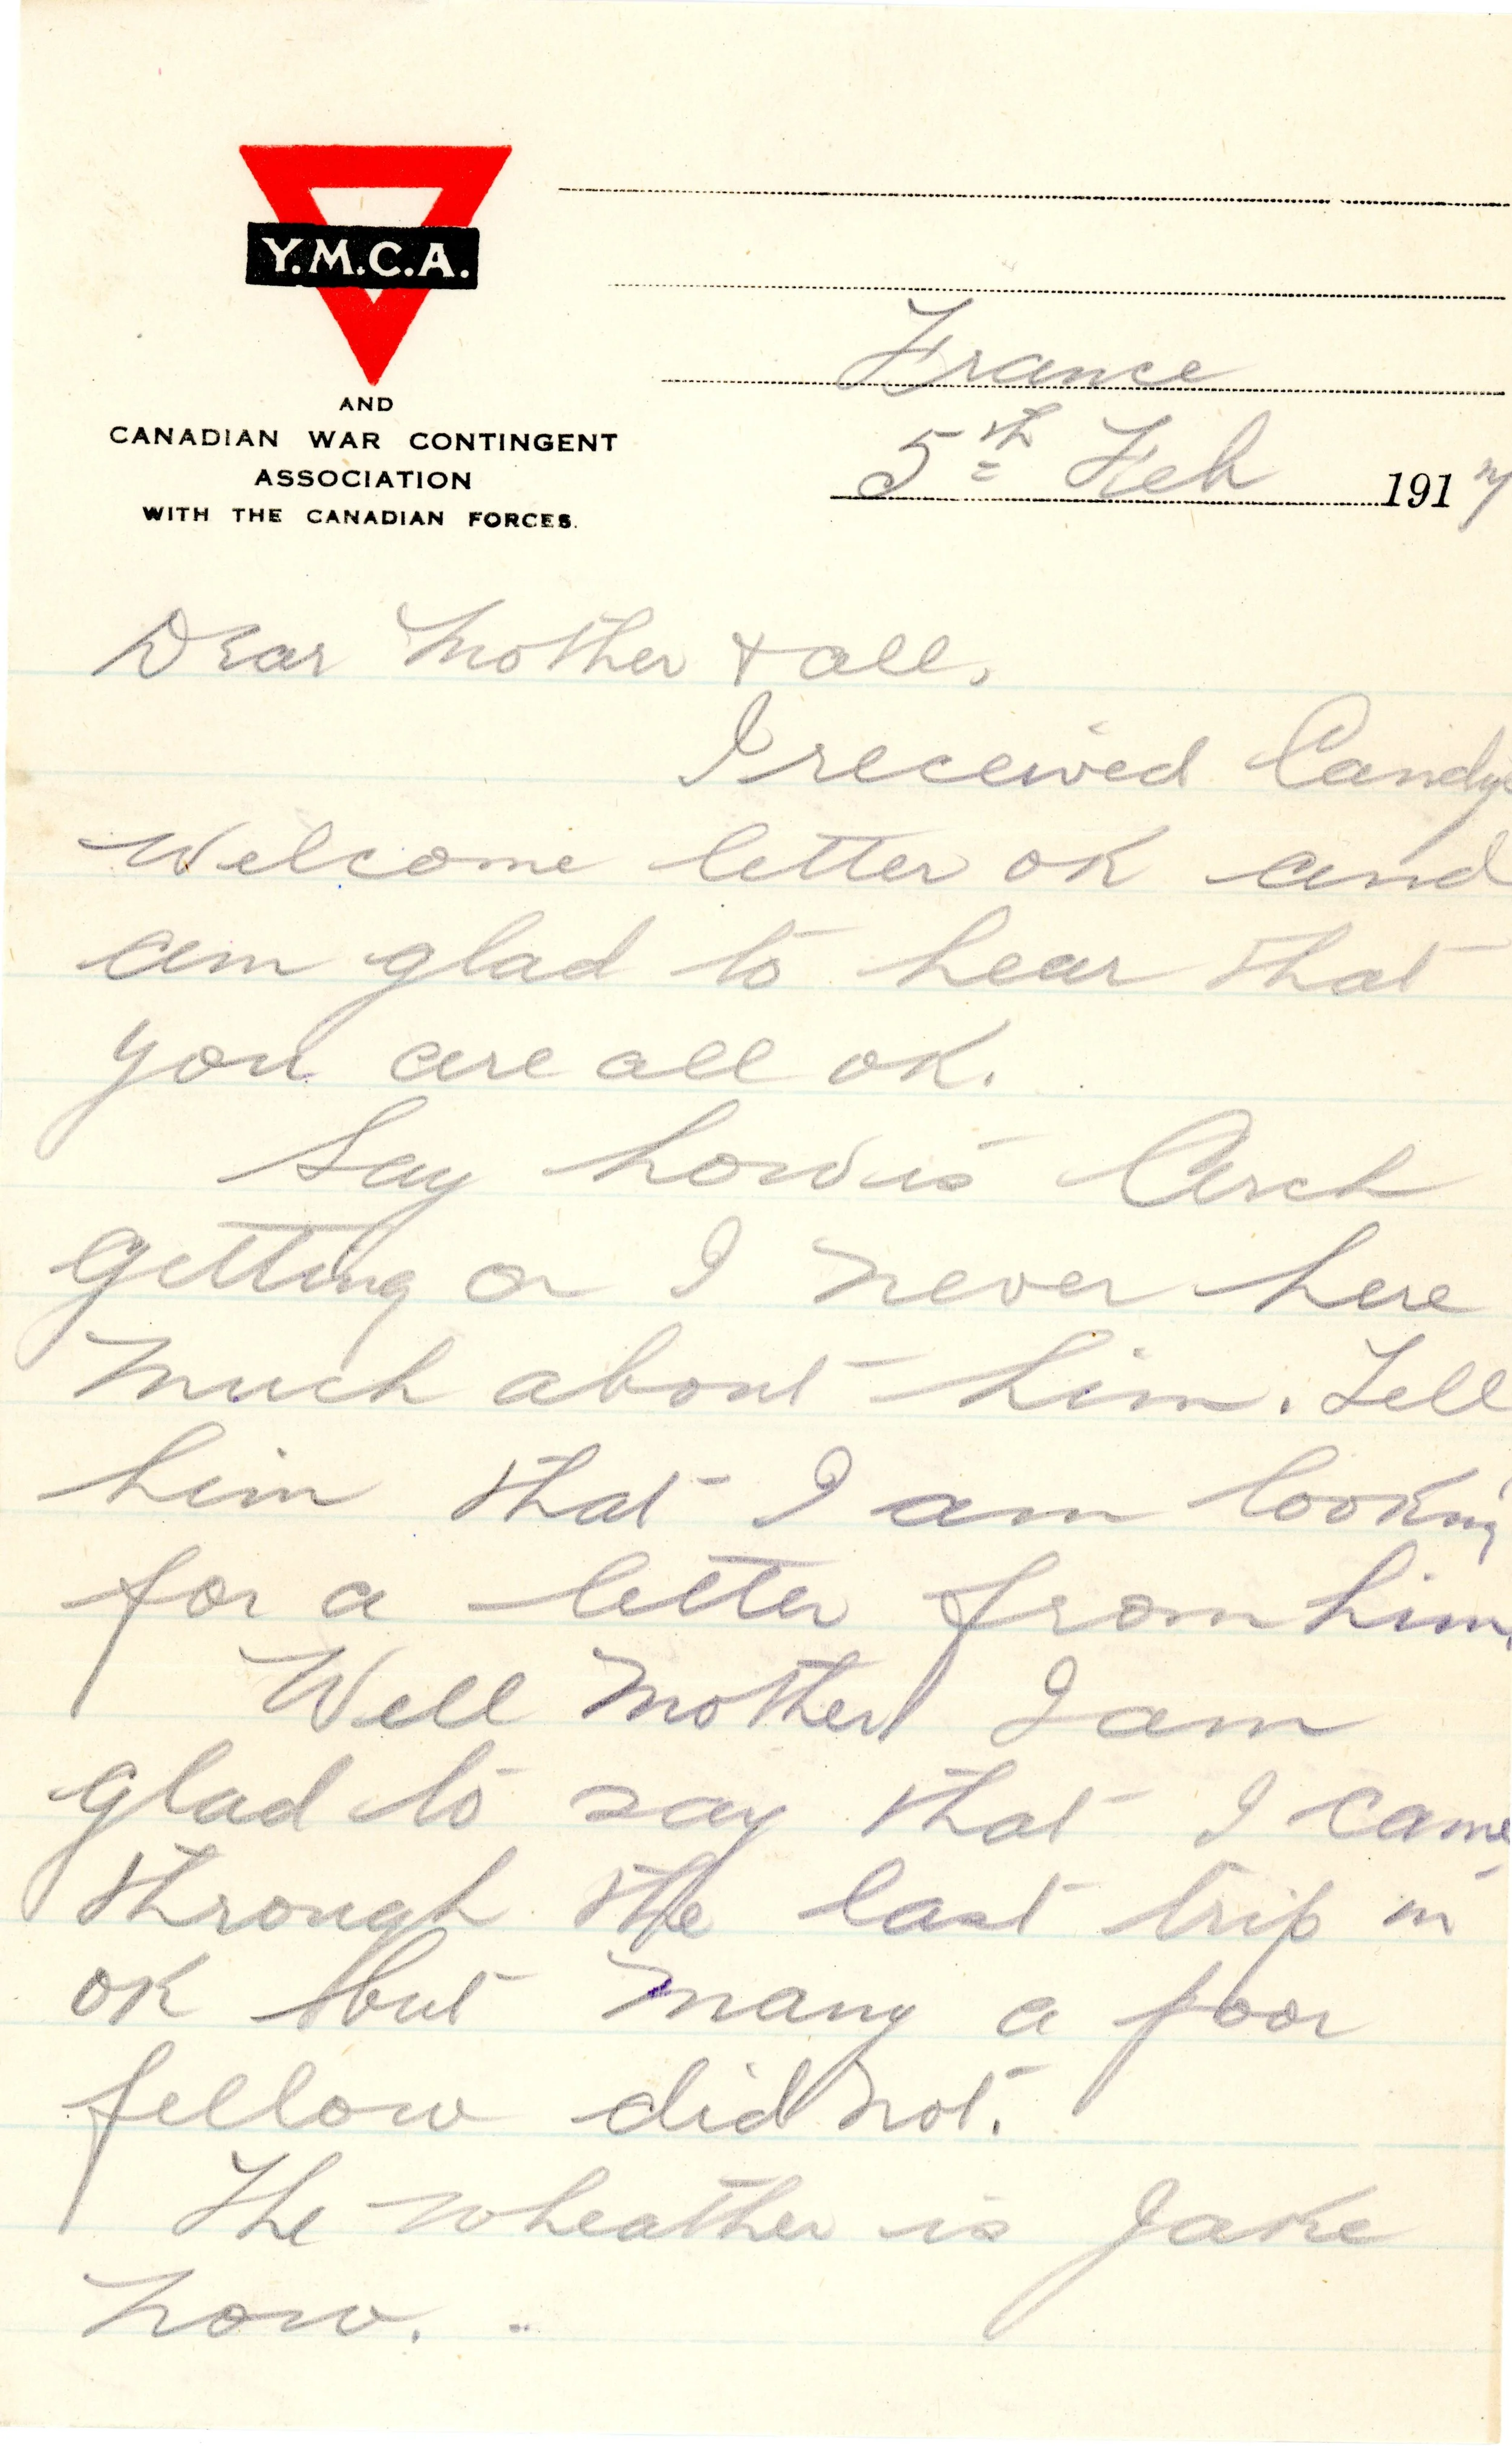 Y.M.C.A.
AND
CANADIAN WAR CONTINGENT
ASSOCIATION
WITH THE CANADIAN FORCES.
France
5th Feb 1917
Dear Mother + all.
I received Candys
Welcome letter OK and
am glad to hear that
you are all OK.
Say how is Arch
getting on I never here
much about him. Tell
him that I am looking
for a letter from him.
Well Mother I am
glad to say that I came
through the last trip in
OK but many a poor
fellow did not.
The wheather is Jake
now. ..